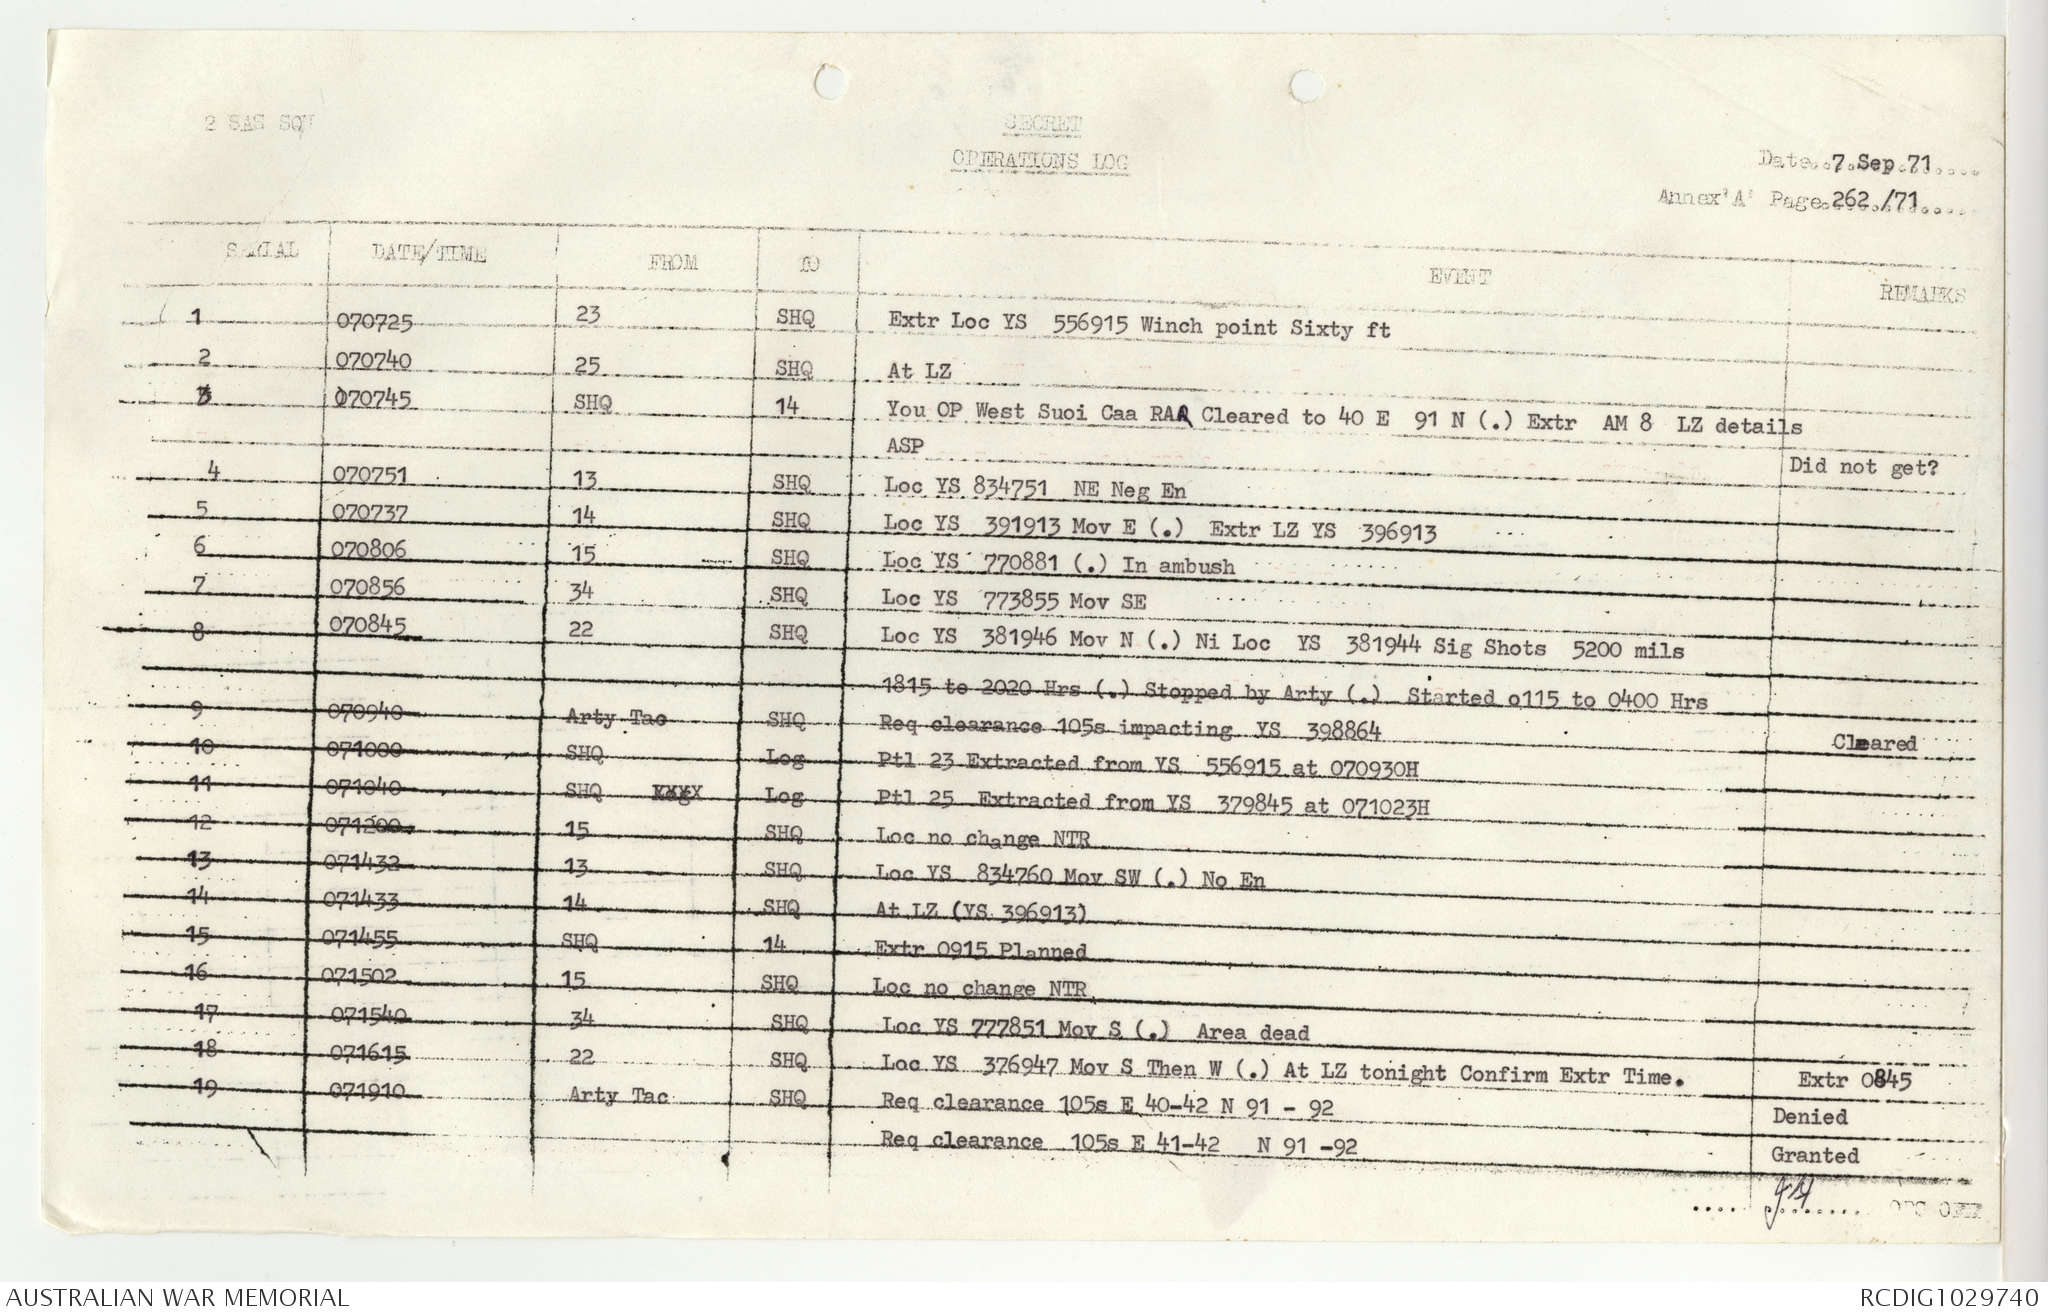 2 SAS SQN
SECRET
OPERATIONS LOG
Date..7.Sep.71.....
Annex 'A' Page.262./71.....
SERIAL DATE/TIME FROM TO EVENT REMARKS
1 070725 23 SHQ Extr Loc YS 556915 Winch point Sixty ft
2 070740 25 SHQ At LZ
3 070745 SHQ 14 You OP West Suoi Caa RAA Cleared to 40 E 91 N (.) Extr AM 8 LZ details
ASP Did not get?
4 070751 13 SHQ Loc YS 834751 NE Neg En
5 070737 14 SHQ Loc YS 391913 Mov E (.) Extr LZ YS 396913
6 070806 15 SHQ Loc YS 770881 (.) In ambush
7 070856 34 SHQ Loc YS 773855 Mov SE
8 070845 22 SHQ Loc YS 381946 Mov N (.) Ni Loc YS 381944 Sig Shots 5200 mils
1815 to 2020 Hrs (.) Stopped by Arty (.) Started o115 to 0400 Hrs
9 070940 Arty Tac SHQ Req clearance 105s impacting YS 398864 Cleared
10 071000 SHQ Log Ptl 23 Extracted from YS 556915 at 070930H
11 071040 SHQ XXXX Log Ptl 25 Extracted from YS 379845 at 071023H
12 071200 15 SHQ Loc no change NTR
13 071432 13 SHQ Loc YS 834760 Mov SW (.) No En
14 071433 14 SHQ At LZ (YS 396913)
15 071455 SHQ 14 Extr 0915 Planned
16 071502 15 SHQ Loc no change NTR
17 071540 34 SHQ Loc YS 777851 Mov S (.) Area dead
18 071615 22 SHQ Loc YS 376947 Mov S Then W (.) At LZ tonight Confirm Extr Time. Extr 0845
19 071910 Arty Tac SHQ Req clearance 105s E 40-42 N 91 - 92 Denied
Req clearance 105s E 41-42 N 91 -92 Granted
OPS OFFR
AUSTRALIAN WAR MEMORIAL RCDIG1029740